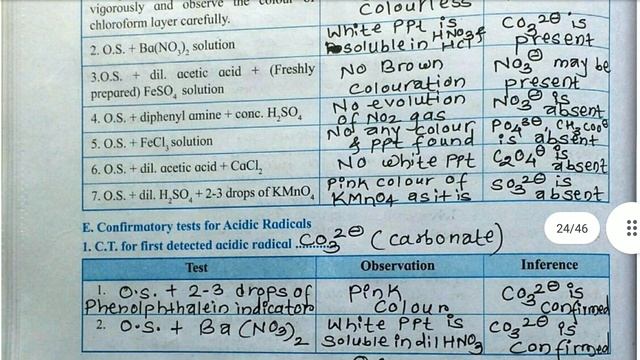 vigorously and observe the colour of
chloroform layer carefully.
Colourless
2. O.S. + Ba(NO₃)₂ solution
White PPt is
soluble in HNO₃ &
HCl
CO₃²⊖ is
present
3.O.S. + dil. acetic acid + (Freshly
prepared) FeSO₄ solution
No Brown
Colouration
NO₃⊖ may be
present
4. O.S. + diphenyl amine + conc. H₂SO₄
No evolution
of NO₂ gas
NO₃⊖ is
absent
5. O.S. + FeCl₃ solution
No any colour
& PPt found
PO₄³⊖, CH₃COO⊖
is absent
6. O.S. + dil. acetic acid + CaCl₂
No white PPt
C₂O₄⊖ is
absent
7. O.S. + dil. H₂SO₄ + 2-3 drops of KMnO₄
Pink colour of
KMnO₄ as it is
SO₃²⊖ is
absent
E. Confirmatory tests for Acidic Radicals
1. C.T. for first detected acidic radical ..CO₃²⊖ (carbonate)
24/46
Test Observation Inference
1. O.S. + 2-3 drops of
Phenolphthalein indicator
Pink
Colour
CO₃²⊖ is
confirmed
2. O.S. + Ba(NO₃)₂
White PPt is
Soluble in dil HNO₃
CO₃²⊖ is
Confirmed